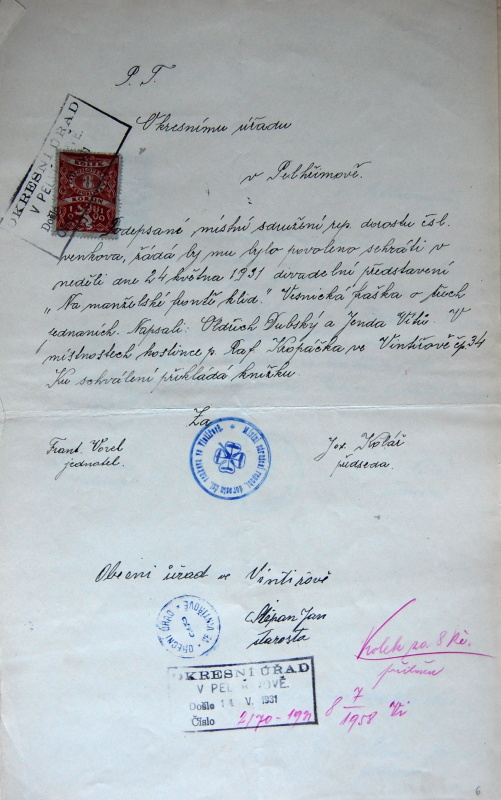 P. T.
Okresnímu úřadu
v Pelhřimově.
OKRESNÍ ÚŘAD
V PEL
Došlo
KOLEK
8
KORUN
Podepsané místní sdružení rep. dorostu čsl.
venkova, žádá by mu bylo povoleno sehráti v
neděli dne 24 května 1931 divadelní představení
„Na manželské frontě klid." Vesnická fraška o třech
jednáních. Napsali: Oldřich Dubský a Jenda Vltů. V
místnostech hostince p. Raf. Kopáčka ve Vintířově čp. 34
Ku schválení přikládá knížku.
Za
Frant. Vorel
jednatel.
Jos. Kolář
předseda.
Obecní úřad ve Vintířově
OBECNÍ ÚŘAD VINTÍŘOV
Štěpan Jan
starosta
Kolek za 8 Kč.
OKRESNÍ ÚŘAD
V PEL OVĚ.
Došlo 14 V. 1931
Číslo 2/70-1931
8 7/1958 Vi
6